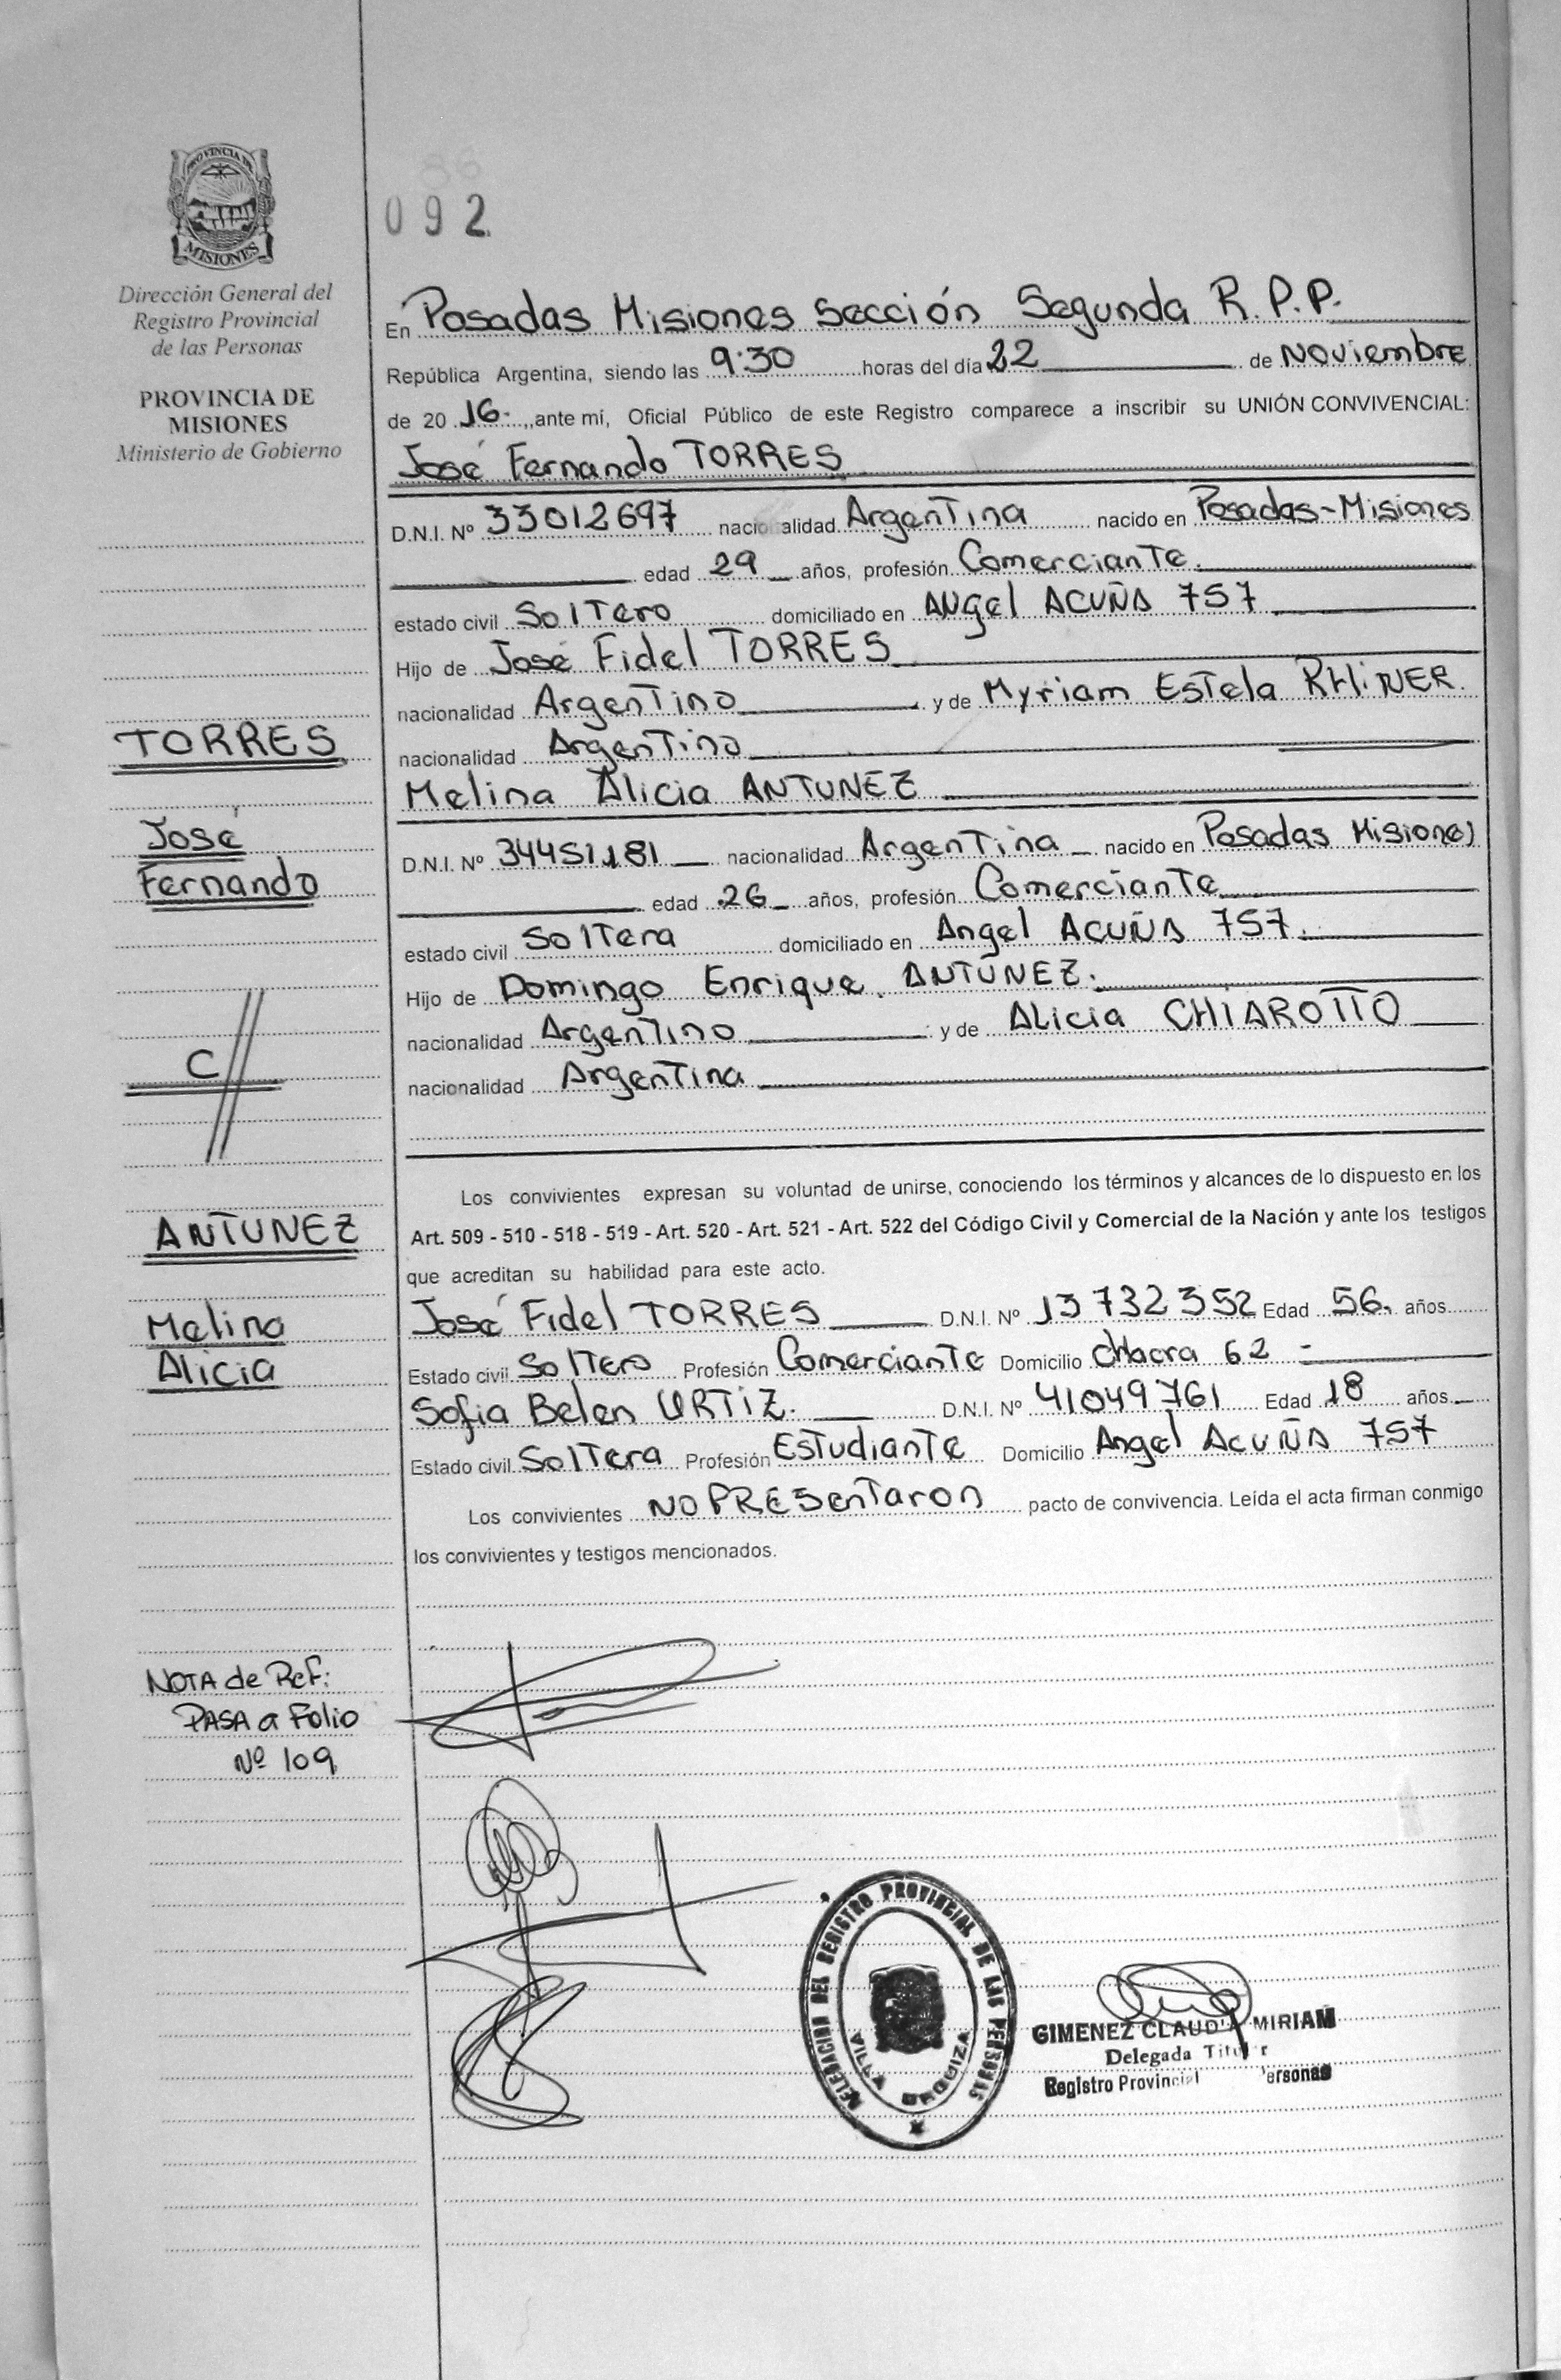 PROVINCIA DE
MISIONES
Dirección General del
Registro Provincial
de las Personas
PROVINCIA DE
MISIONES
Ministerio de Gobierno
TORRES
José
Fernando
C//
ANTUNEZ
Melina
Alicia
NOTA de Ref:
PASA a Folio
Nº 109
092
En Posadas Misiones Sección Segunda R.P.P.
República Argentina, siendo las 9:30 horas del día 22 de Noviembre
de 20 16. ,ante mí, Oficial Público de este Registro comparece a inscribir su UNIÓN CONVIVENCIAL:
José Fernando TORRES
D.N.I. Nº 33012697 nacionalidad Argentina nacido en Posadas-Misiones
edad 29 años, profesión Comerciante.
estado civil Soltero domiciliado en ANgel ACUÑA 757
Hijo de José Fidel TORRES
nacionalidad Argentino y de Myriam Estela
nacionalidad Argentina
Melina Alicia ANTUNEZ
D.N.I. Nº 34451181 nacionalidad Argentina nacido en Posadas Misiones
edad 26 años, profesión Comerciante
estado civil Soltera domiciliado en Angel ACUÑA 757.
Hijo de Domingo Enrique ANTUNEZ.
nacionalidad Argentino y de Alicia CHIAROTTO
nacionalidad Argentina
Los convivientes expresan su voluntad de unirse, conociendo los términos y alcances de lo dispuesto en los
Art. 509 - 510 - 518 - 519 - Art. 520 - Art. 521 - Art. 522 del Código Civil y Comercial de la Nación y ante los testigos
que acreditan su habilidad para este acto.
José Fidel TORRES D.N.I. Nº 13732352 Edad 56. años
Estado civil Soltero Profesión Comerciante Domicilio Chacra 62 -
Sofia Belen ORTIZ. D.N.I. Nº 41049761 Edad 18 años
Estado civil Soltera Profesión Estudiante Domicilio Angel ACUÑA 757
Los convivientes NO PRESentaron pacto de convivencia. Leída el acta firman conmigo
los convivientes y testigos mencionados.
DELEGACION DEL REGISTRO PROVINCIAL DE LAS PERSONAS
VILLA URQUIZA
GIMENEZ CLAUDIA MIRIAM
Delegada Titular
Registro Provincial Personas